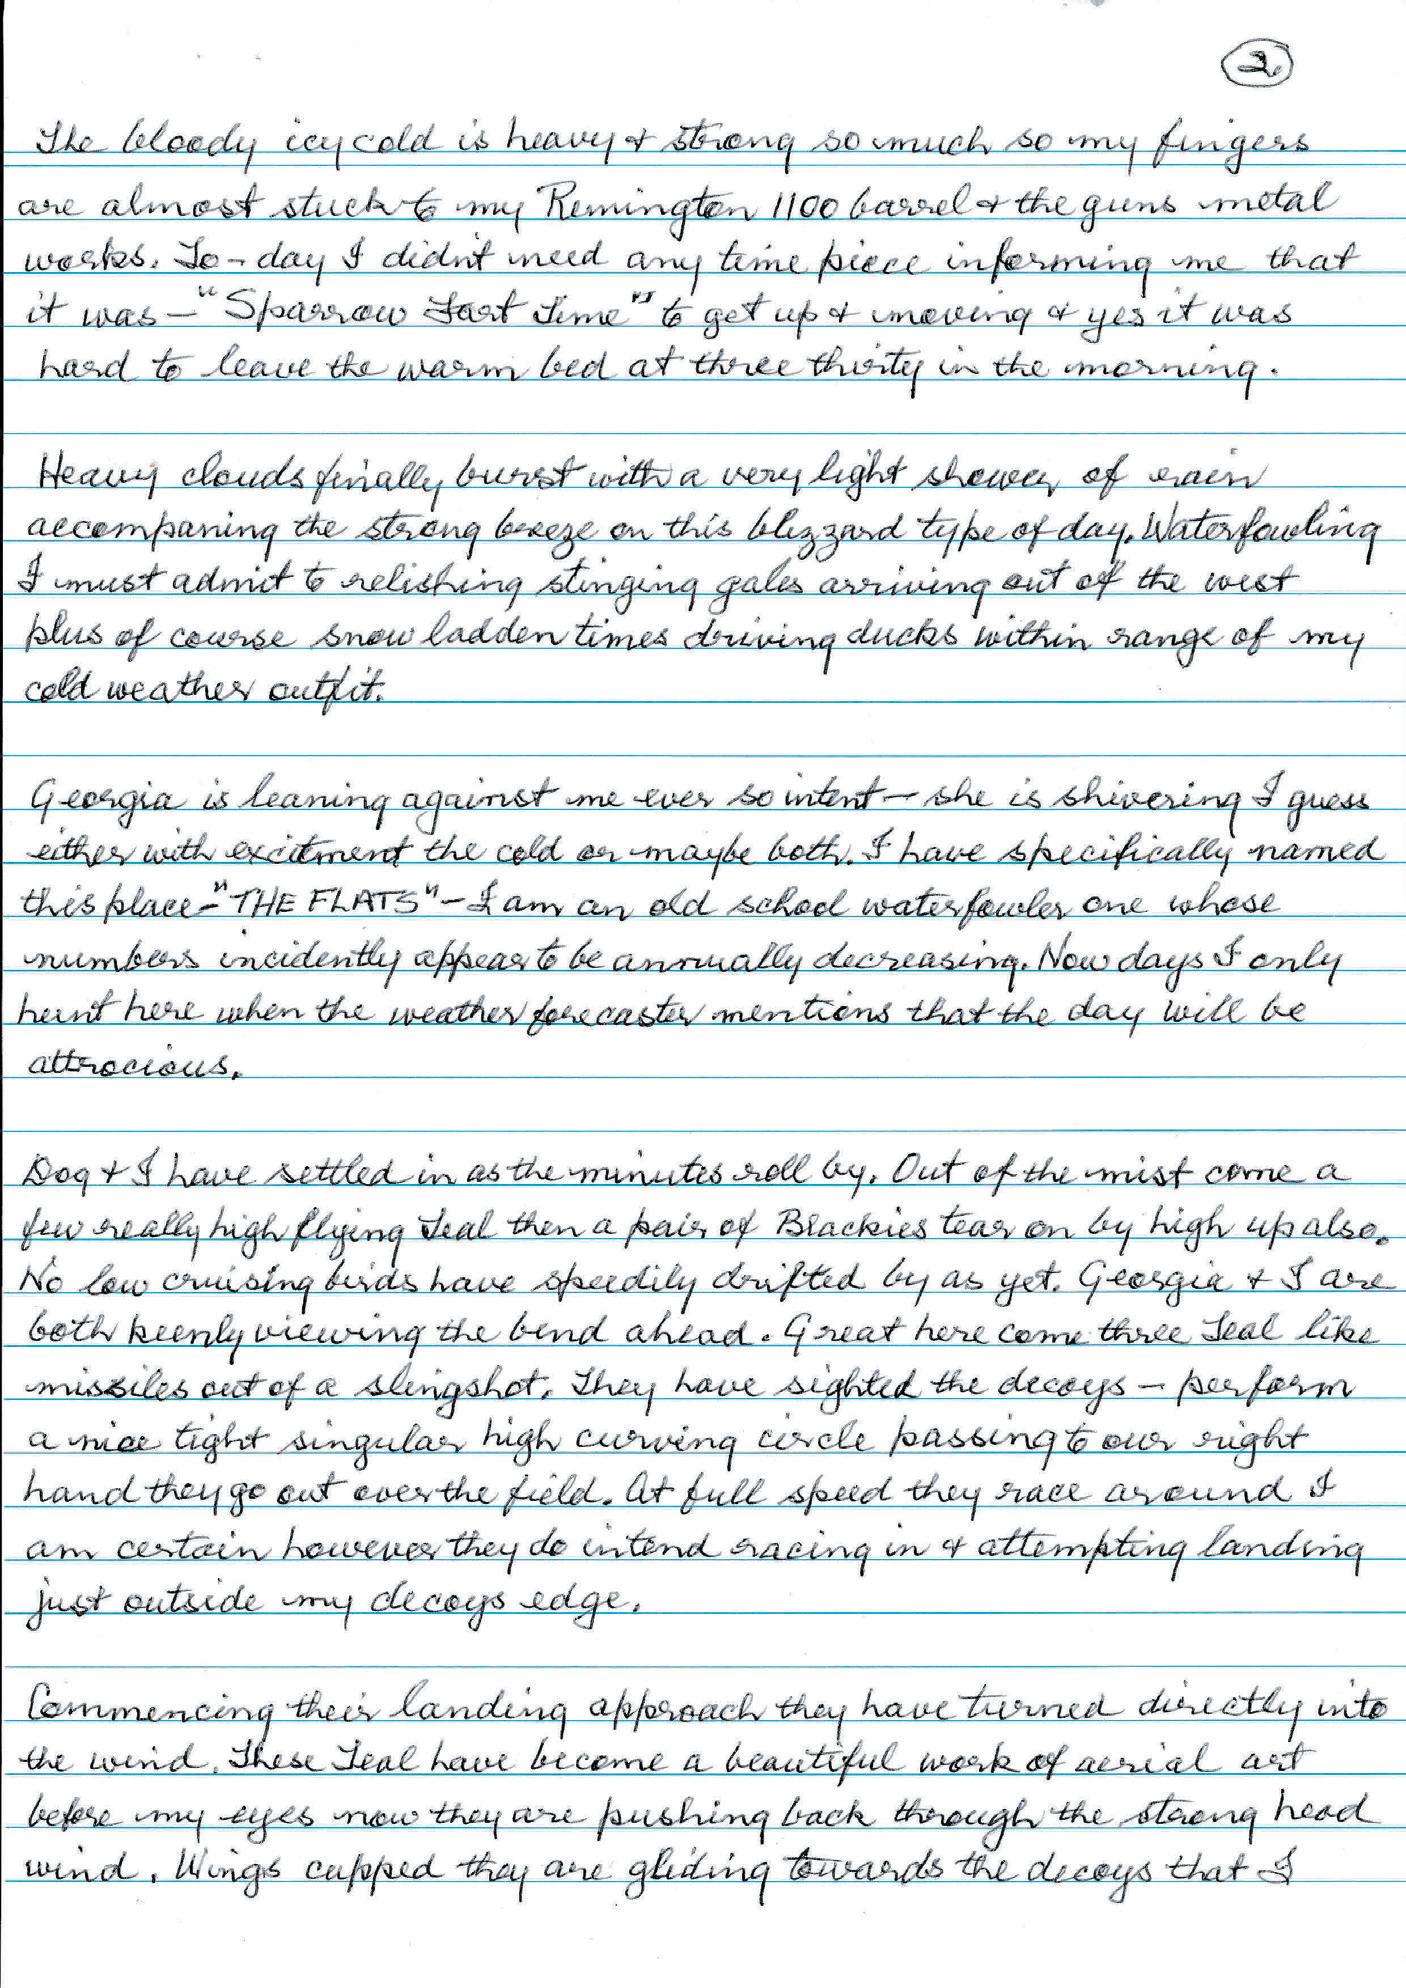 2.
The bloody icy cold is heavy & strong so much so my fingers
are almost stuck to my Remington 1100 barrel & the guns metal
works. To-day I didn't need any time piece informing me that
it was - "Sparrow Fart Time" to get up & moving & yes it was
hard to leave the warm bed at three thirty in the morning.
Heavy clouds finally burst with a very light shower of rain
accompaning the strong breeze on this blizzard type of day. Waterfowling
I must admit to relishing stinging gales arriving out of the west
plus of course snow ladden times driving ducks within range of my
cold weather outfit.
Georgia is leaning against me ever so intent - she is shivering I guess
either with excitment the cold or maybe both. I have specifically named
this place - "THE FLATS" - I am an old school waterfowler one whose
numbers incidently appear to be annually decreasing. Now days I only
hunt here when the weather forecaster mentions that the day will be
attrocious.
Dog & I have settled in as the minutes roll by. Out of the mist come a
few really high flying Teal then a pair of Blackies tear on by high up also.
No low cruising birds have speedily drifted by as yet. Georgia & I are
both keenly viewing the bend ahead. Great here come three Teal like
missiles out of a slingshot. They have sighted the decoys - perform
a nice tight singular high curving circle passing to our right
hand they go out over the field. At full speed they race around I
am certain however they do intend racing in & attempting landing
just outside my decoys edge.
Commencing their landing approach they have turned directly into
the wind. These Teal have become a beautiful work of aerial art
before my eyes now they are pushing back through the strong head
wind. Wings cupped they are gliding towards the decoys that I